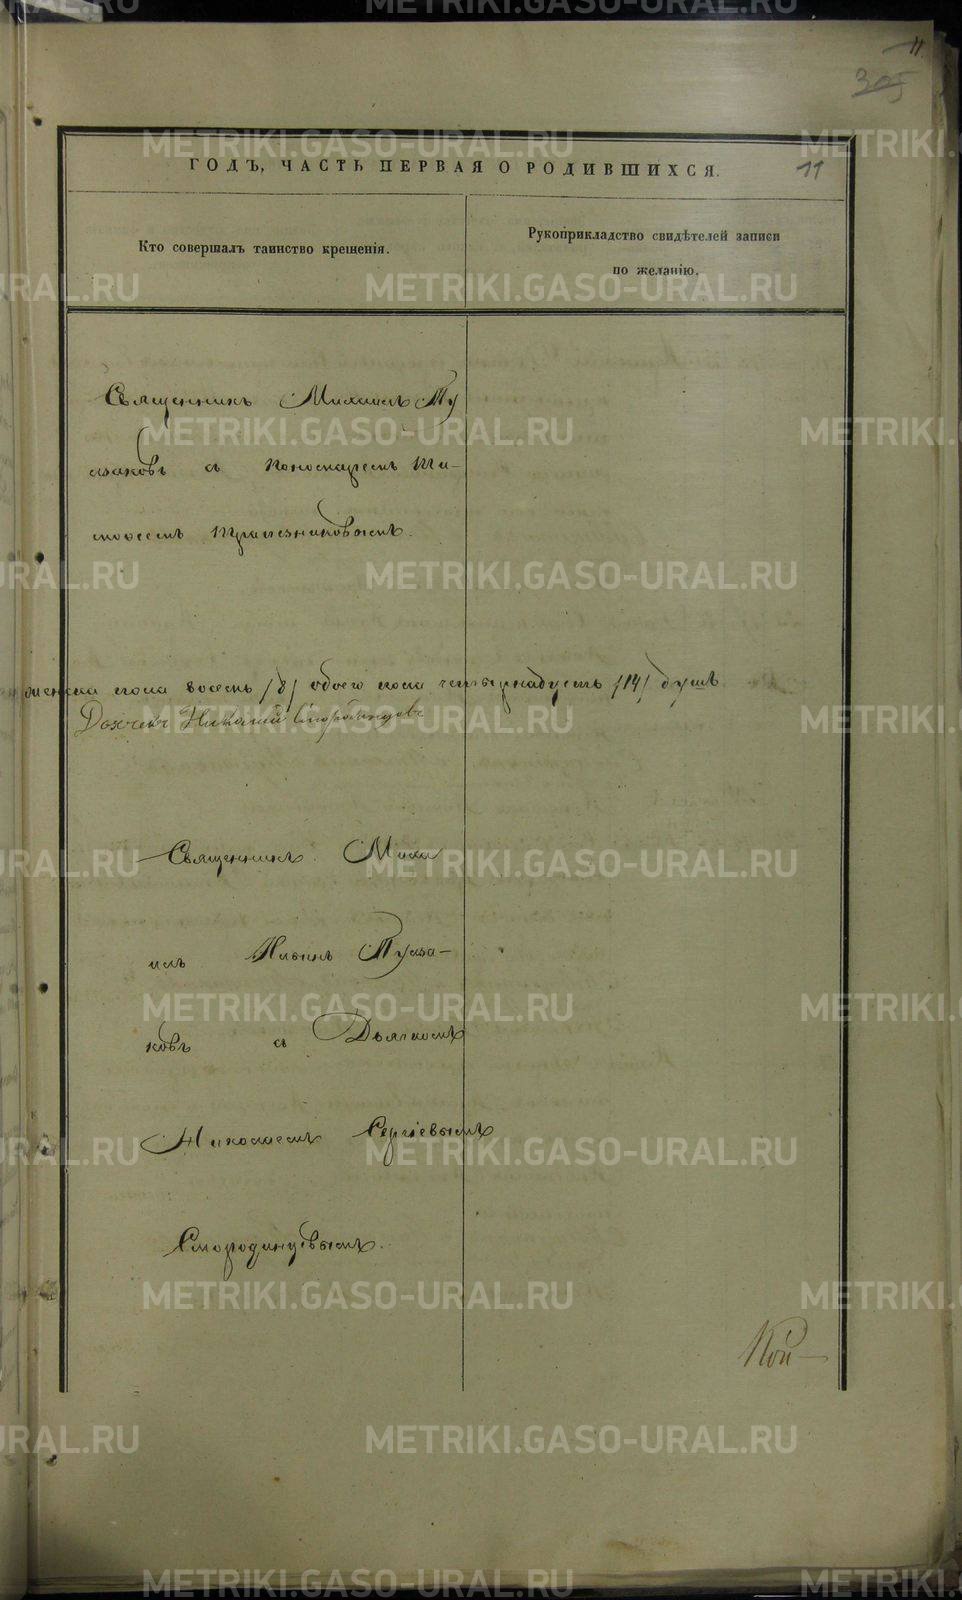 11
305
ГОДЪ, ЧАСТЬ ПЕРВАЯ О РОДИВШИХСЯ.
11
Кто совершалъ таинство крещенія.
Рукоприкладство свидѣтелей записи
по желанію.
Священникъ Михаилъ Ту
лзаковъ с Пономаремъ Ти
моѳеемъ Трапезниковымъ.
женска пола восемь /8/ обоего пола четырнадцать /14/ душъ
Дьячекъ Николай Смородинцовъ
Священникъ Миха
илъ Ильинъ Тулза-
ковъ съ Дьячкомъ
Николаемъ Сергіевымъ
Смородинцовымъ.
METRIKI.GASO-URAL.RU